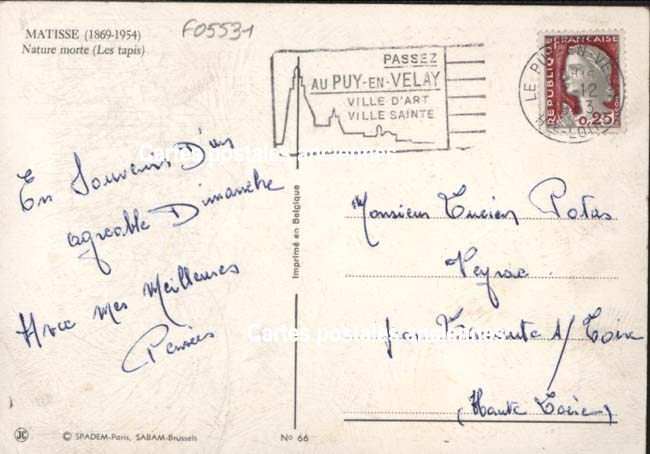 MATISSE (1869-1954)
Nature morte (Les tapis)
F05531
PASSEZ
AU PUY-EN-VELAY
VILLE D'ART
VILLE SAINTE
LE PUY-EN-VELAY
12
3
HTE-LOIRE
REPUBLIQUE FRANÇAISE
0,25
En Souvenir D'un
agreable Dimanche
Avec mes Meilleures
Pensées
Imprimé en Belgique
Monsieur Lucien
Veyrac
par s/ Loire
(Haute Loire)
Cartes postales anciennes
Cartes postales anciennes
JC
© SPADEM-Paris, SABAM-Brussels
No 66